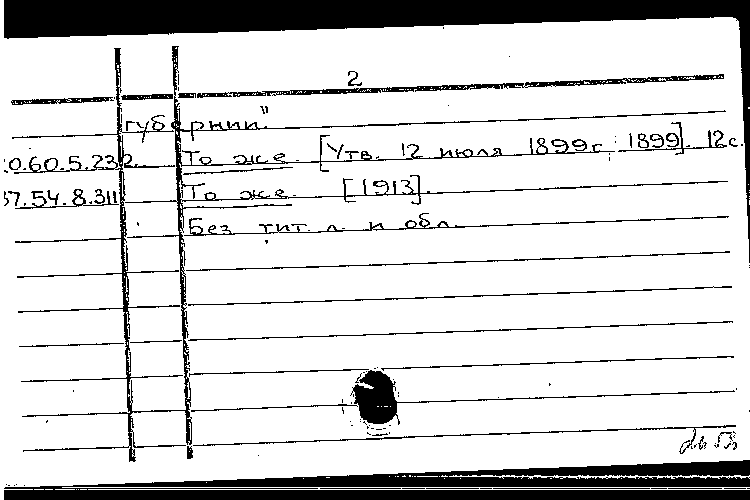 2
губернии."
0.60.5.232. То же [Утв. 12 июля 1899г. 1899]. 12с.
37.54.8.311 То же [1913].
Без тит. л. и обл.